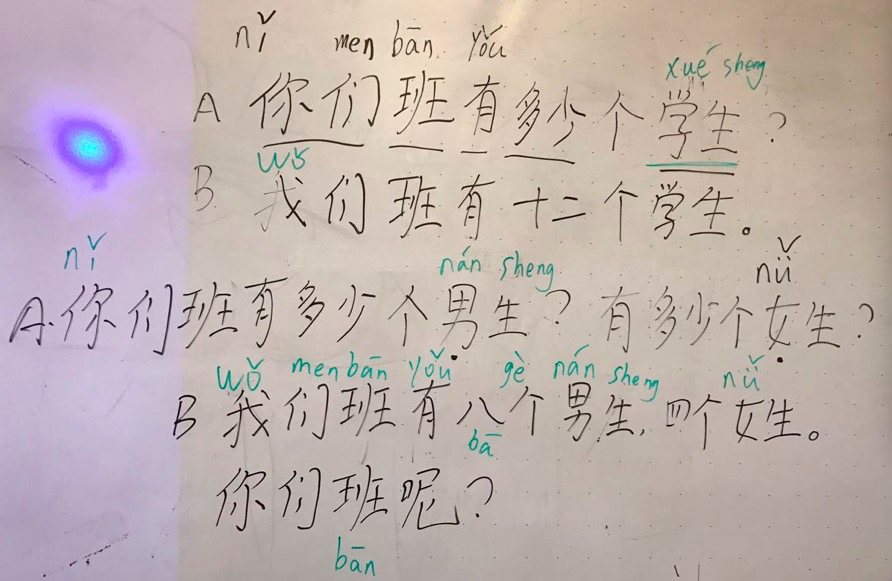 nǐ men bān yǒu
xué sheng
A 你们班有多少个学生?
wǒ
B. 我们班有十二个学生。
nǐ nán sheng nǚ
A. 你们班有多少个男生? 有多少个女生?
wǒ men bān yǒu gè nán sheng nǚ
B 我们班有八个男生, 四个女生。
bā
你们班呢?
bān